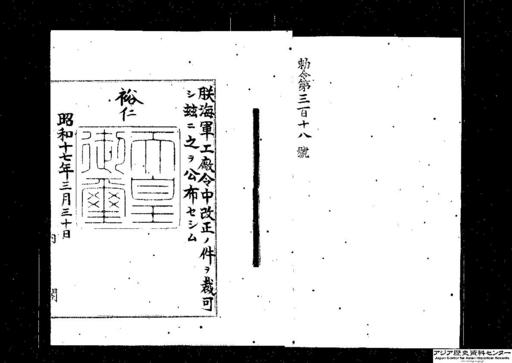 勅令第三百十八號
朕海軍工廠令中改正ノ件ヲ裁可
シ茲ニ之ヲ公布セシム
裕仁
天皇
御璽
昭和十七年三月三十日
内
閣
アジア歴史資料センター
Japan Center for Asian Historical Records